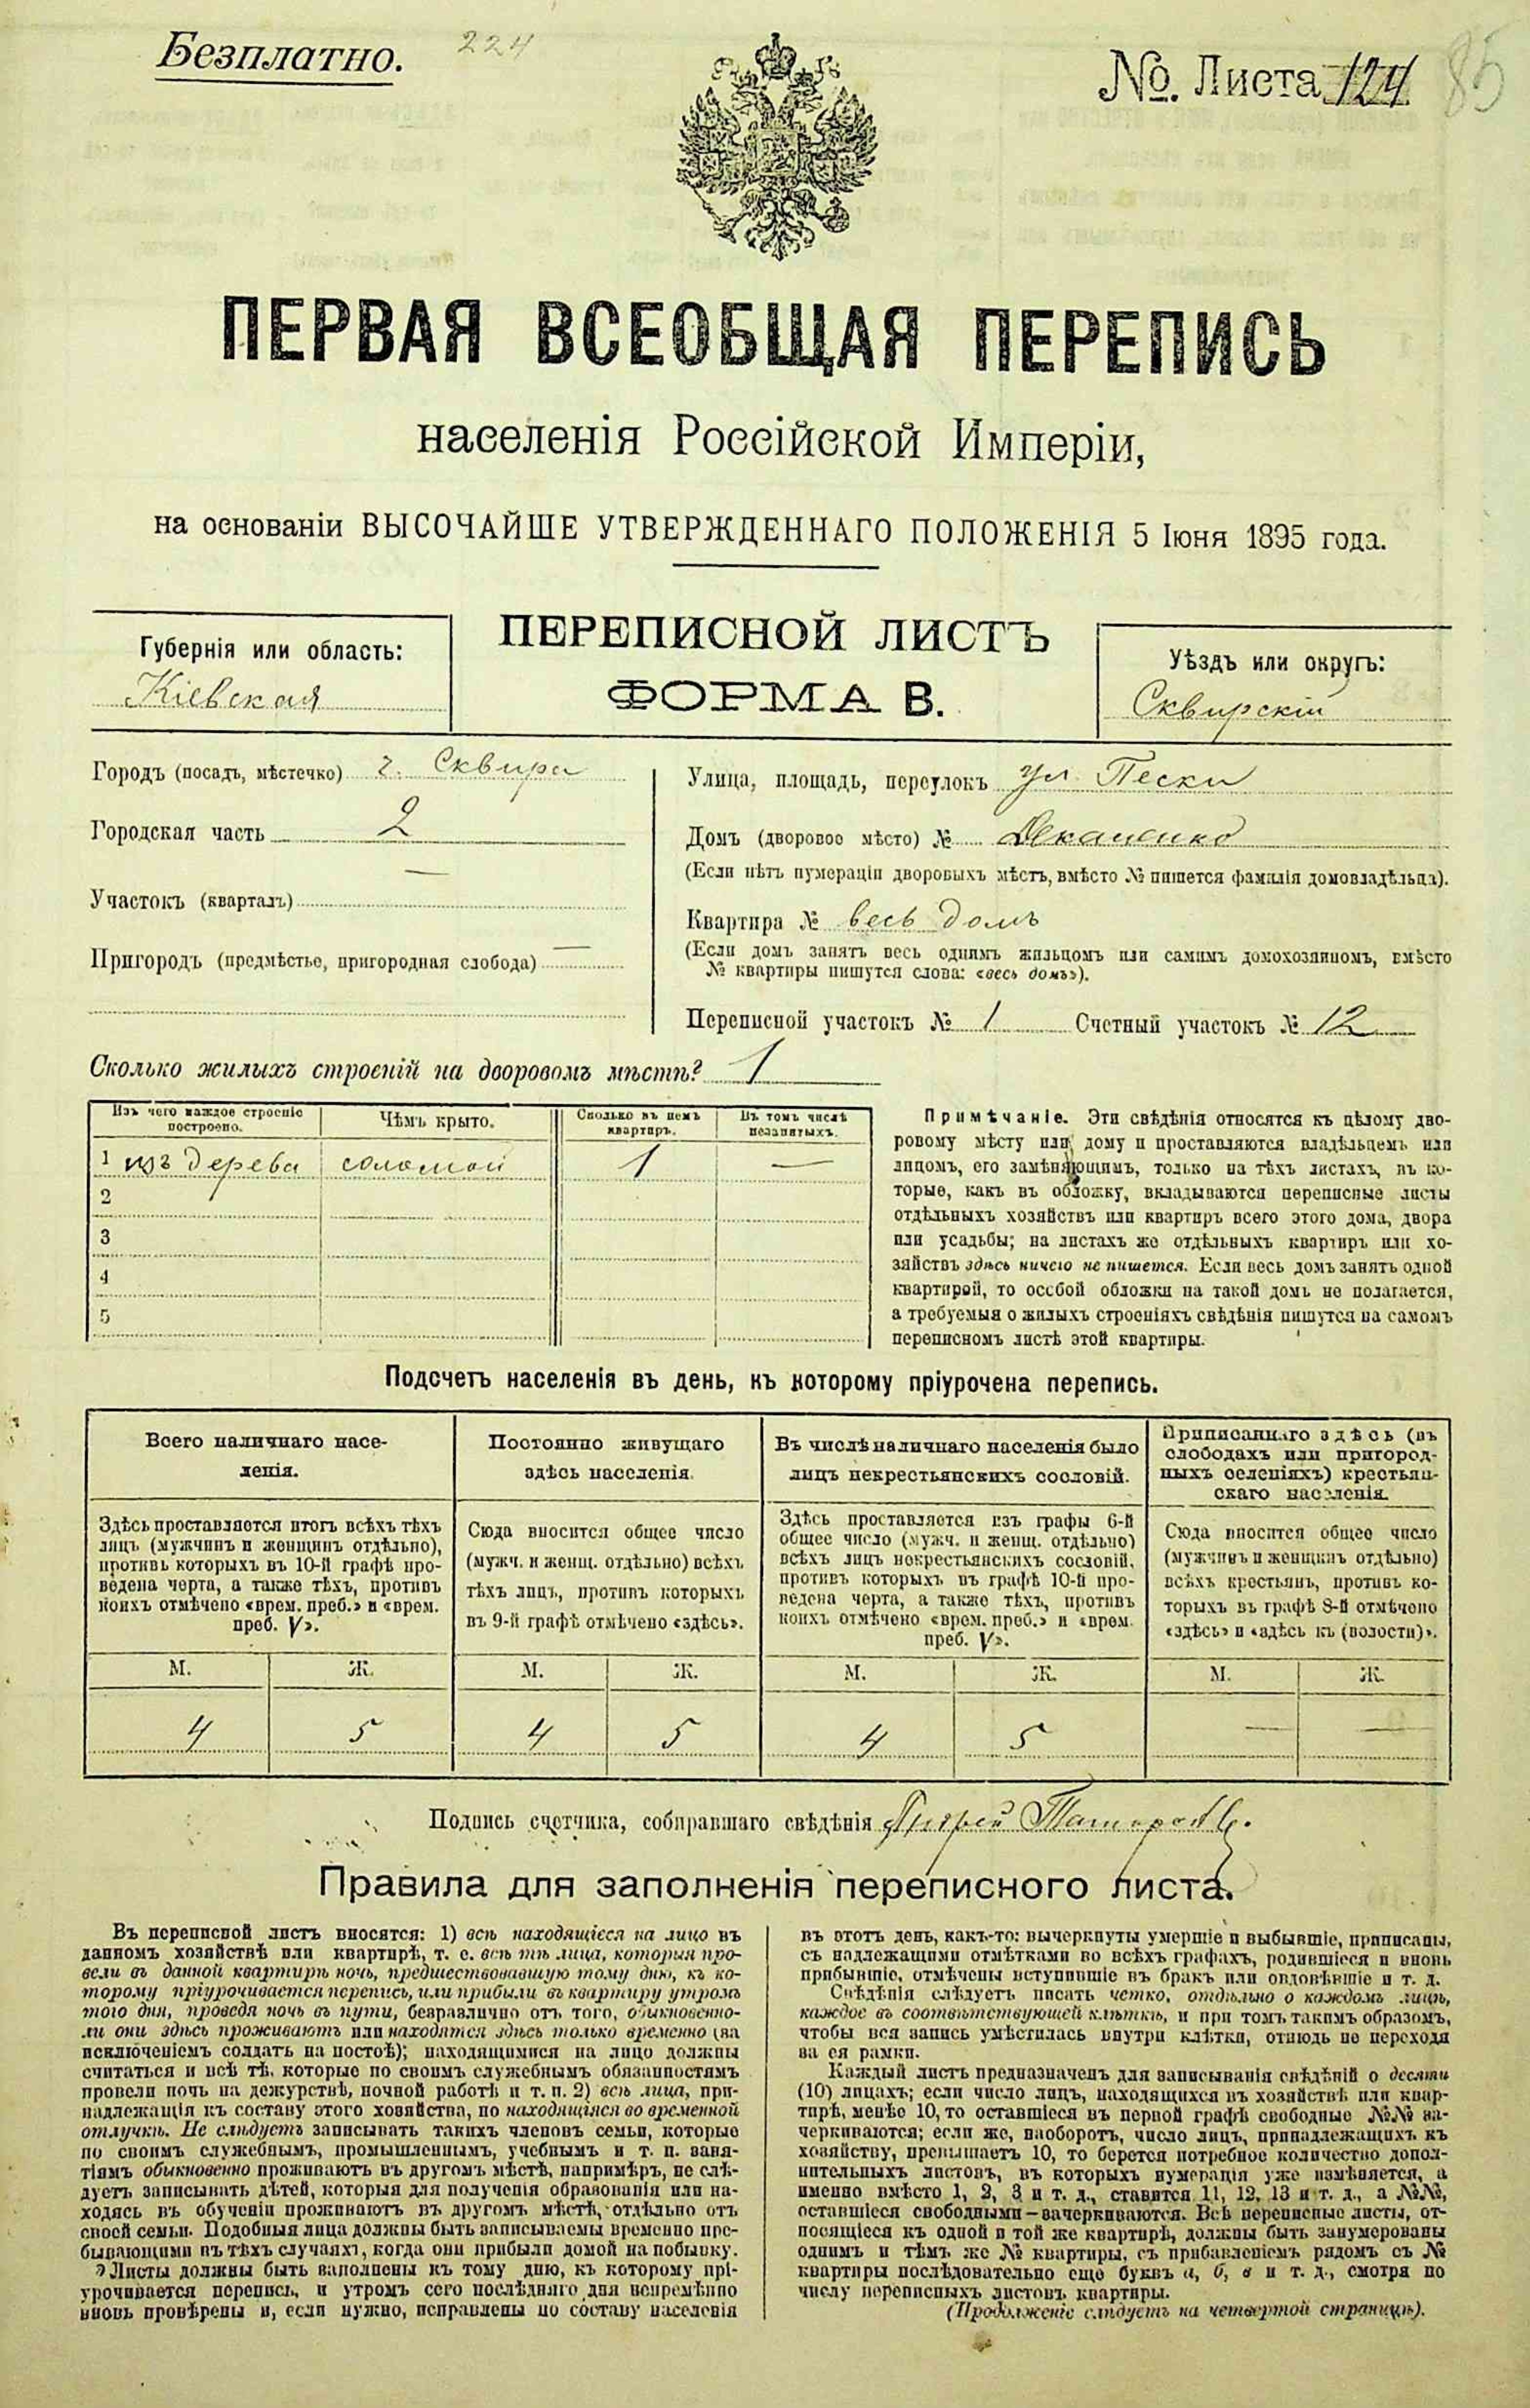 Безплатно.
224
№. Листа 124
85
ПЕРВАЯ ВСЕОБЩАЯ ПЕРЕПИСЬ
населенія Россійской Имперіи,
на основаніи ВЫСОЧАЙШЕ УТВЕРЖДЕННАГО ПОЛОЖЕНІЯ 5 Іюня 1895 года.
Губернія или область:
Кіевская
ПЕРЕПИСНОЙ ЛИСТЪ
ФОРМА В.
Уѣздъ или округъ:
Сквирскій
Городъ (посадъ, мѣстечко) г. Сквира
Городская часть 2
Участокъ (кварталъ) —
Пригородъ (предмѣстье, пригородная слобода) —
Улица, площадь, переулокъ ул Пески
Домъ (дворовое мѣсто) №
(Если нѣтъ нумераціи дворовыхъ мѣстъ, вмѣсто № пишется фамилія домовладѣльца).
Квартира № весь домъ
(Если домъ занятъ весь однимъ жильцомъ или самимъ домохозяиномъ, вмѣсто
№ квартиры пишутся слова: «весь домъ»).
Переписной участокъ № 1 Счетный участокъ № 12
Сколько жилыхъ строеній на дворовомъ мѣстѣ? 1
Изъ чего каждое строеніе построено.
Чѣмъ крыто.
Сколько въ немъ квартиръ.
Въ томъ числѣ незанятыхъ.
1 изъ дерева соломой 1 —
2
3
4
5
Примѣчаніе. Эти свѣдѣнія относятся къ цѣлому дво-
ровому мѣсту или дому и проставляются владѣльцемъ или
лицомъ, его замѣняющимъ, только на тѣхъ листахъ, въ ко-
торые, какъ въ обложку, вкладываются переписные листы
отдѣльныхъ хозяйствъ или квартиръ всего этого дома, двора
или усадьбы; на листахъ же отдѣльныхъ квартиръ или хо-
зяйствъ здѣсь ничего не пишется. Если весь домъ занятъ одной
квартирой, то особой обложки на такой домъ не полагается,
а требуемыя о жилыхъ строеніяхъ свѣдѣнія пишутся на самомъ
переписномъ листѣ этой квартиры.
Подсчетъ населенія въ день, къ которому пріурочена перепись.
Всего наличнаго насе-
ленія.
Здѣсь проставляется итогъ всѣхъ тѣхъ
лицъ (мужчинъ и женщинъ отдѣльно),
противъ которыхъ въ 10-й графѣ про-
ведена черта, а также тѣхъ, противъ
коихъ отмѣчено «врем. преб.» и «врем.
преб. V».
Постоянно живущаго
здѣсь населенія.
Сюда вносится общее число
(мужч. и женщ. отдѣльно) всѣхъ
тѣхъ лицъ, противъ которыхъ
въ 9-й графѣ отмѣчено «здѣсь».
Въ числѣ наличнаго населенія было
лицъ некрестьянскихъ сословій.
Здѣсь проставляется изъ графы 6-й
общее число (мужч. и женщ. отдѣльно)
всѣхъ лицъ некрестьянскихъ сословій,
противъ которыхъ въ графѣ 10-й про-
ведена черта, а также тѣхъ, противъ
коихъ отмѣчено «врем. преб.» и «врем.
преб. V».
Приписаннаго здѣсь (въ
слободахъ или пригород-
ныхъ селеніяхъ) крестьян-
скаго населенія.
Сюда вносится общее число
(мужчинъ и женщинъ отдѣльно)
всѣхъ крестьянъ, противъ ко-
торыхъ въ графѣ 8-й отмѣчено
«здѣсь» и «здѣсь къ (волости)».
М. Ж. М. Ж. М. Ж. М. Ж.
4 5 4 5 4 5 — —
Подпись счетчика, собиравшаго свѣдѣнія
Правила для заполненія переписного листа.
Въ переписной листъ вносятся: 1) всѣ находящіеся на лицо въ
данномъ хозяйствѣ или квартирѣ, т. е. всѣ тѣ лица, которыя про-
вели въ данной квартирѣ ночь, предшествовавшую тому дню, къ ко-
торому пріурочивается перепись, или прибыли въ квартиру утромъ
того дня, проведя ночь въ пути, безразлично отъ того, обыкновенно-
ли они здѣсь проживаютъ или находятся здѣсь только временно (за
исключеніемъ солдатъ на постоѣ); находящимися на лицо должны
считаться и всѣ тѣ, которые по своимъ служебнымъ обязанностямъ
провели ночь на дежурствѣ, ночной работѣ и т. п. 2) всѣ лица, при-
надлежащія къ составу этого хозяйства, но находящіяся во временной
отлучкѣ. Не слѣдуетъ записывать такихъ членовъ семьи, которые
по своимъ служебнымъ, промышленнымъ, учебнымъ и т. п. заня-
тіямъ обыкновенно проживаютъ въ другомъ мѣстѣ, напримѣръ, не слѣ-
дуетъ записывать дѣтей, которыя для полученія образованія или на-
ходясь въ обученіи проживаютъ въ другомъ мѣстѣ, отдѣльно отъ
своей семьи. Подобныя лица должны быть записываемы временно пре-
бывающими въ тѣхъ случаяхъ, когда они прибыли домой на побывку.
Листы должны быть заполнены къ тому дню, къ которому прі-
урочивается перепись, и утромъ сего послѣдняго дня непремѣнно
вновь провѣрены и, если нужно, исправлены по составу населенія
въ этотъ день, какъ-то: вычеркнуты умершіе и выбывшіе, приписаны,
съ надлежащими отмѣтками во всѣхъ графахъ, родившіеся и вновь
прибывшіе, отмѣчены вступившіе въ бракъ или овдовѣвшіе и т. д.
Свѣдѣнія слѣдуетъ писать четко, отдѣльно о каждомъ лицѣ,
каждое въ соотвѣтствующей клѣткѣ, и при томъ такимъ образомъ,
чтобы вся запись умѣстилась внутри клѣтки, отнюдь не переходя
за ея рамки.
Каждый листъ предназначенъ для записыванія свѣдѣній о десяти
(10) лицахъ; если число лицъ, находящихся въ хозяйствѣ или квар-
тирѣ, менѣе 10, то оставшіеся въ первой графѣ свободные №№ за-
черкиваются; если же, наоборотъ, число лицъ, принадлежащихъ къ
хозяйству, превышаетъ 10, то берется потребное количество допол-
нительныхъ листовъ, въ которыхъ нумерація уже измѣняется, а
именно вмѣсто 1, 2, 3 и т. д., ставится 11, 12, 13 и т. д., а №№,
оставшіеся свободными — зачеркиваются. Всѣ переписные листы, от-
носящіеся къ одной и той же квартирѣ, должны быть занумерованы
однимъ и тѣмъ же № квартиры, съ прибавленіемъ рядомъ съ №
квартиры послѣдовательно еще буквъ а, б, в и т. д., смотря по
числу переписныхъ листовъ квартиры.
(Продолженіе слѣдуетъ на четвертой страницѣ).